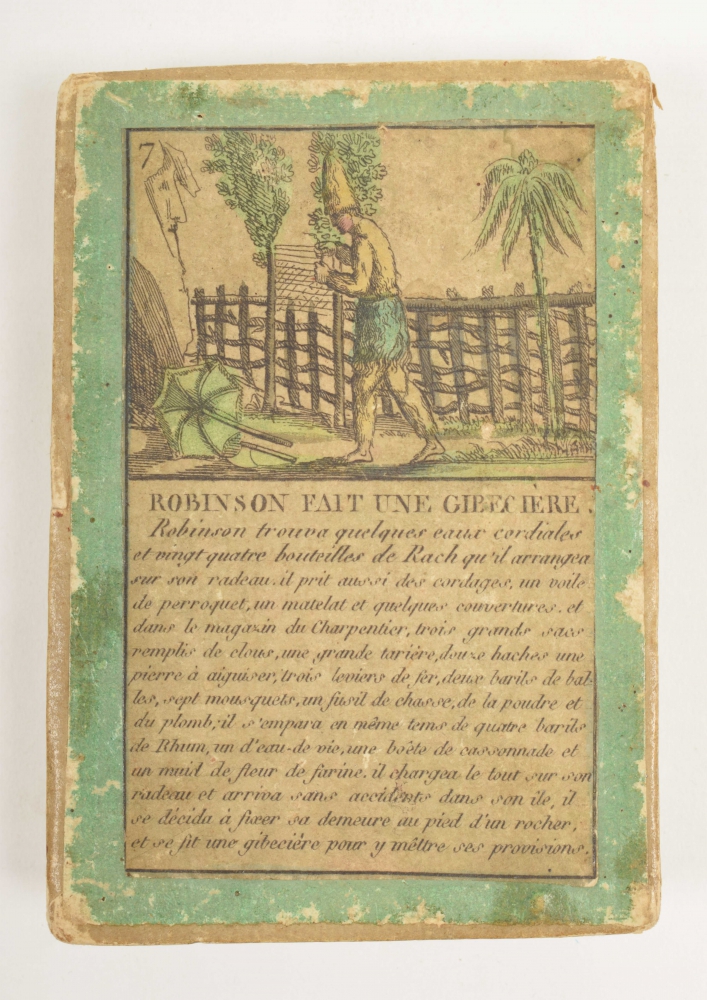 7
ROBINSON FAIT UNE GIBECIERE.
Robinson trouva quelques eaux cordiales
et vingt quatre bouteilles de Rach qu'il arrangea
sur son radeau. il prit aussi des cordages, un voile
de perroquet, un matelat et quelques couvertures. et
dans le magazin du Charpentier, trois grands sacs
remplis de clous, une grande tarière, douze haches une
pierre à aiguiser, trois leviers de fer, deux barils de bal-
les, sept mousquets, un fusil de chasse, de la poudre et
du plomb; il s'empara en même tems de quatre barils
de Rhum, un d'eau-de vie, une boëte de cassonnade et
un muid de fleur de farine. il chargea le tout sur son
radeau et arriva sans accidents dans son ile, il
se décida à fixer sa demeure au pied d'un rocher,
et se fit une gibeciére pour y mêttre ses provisions.